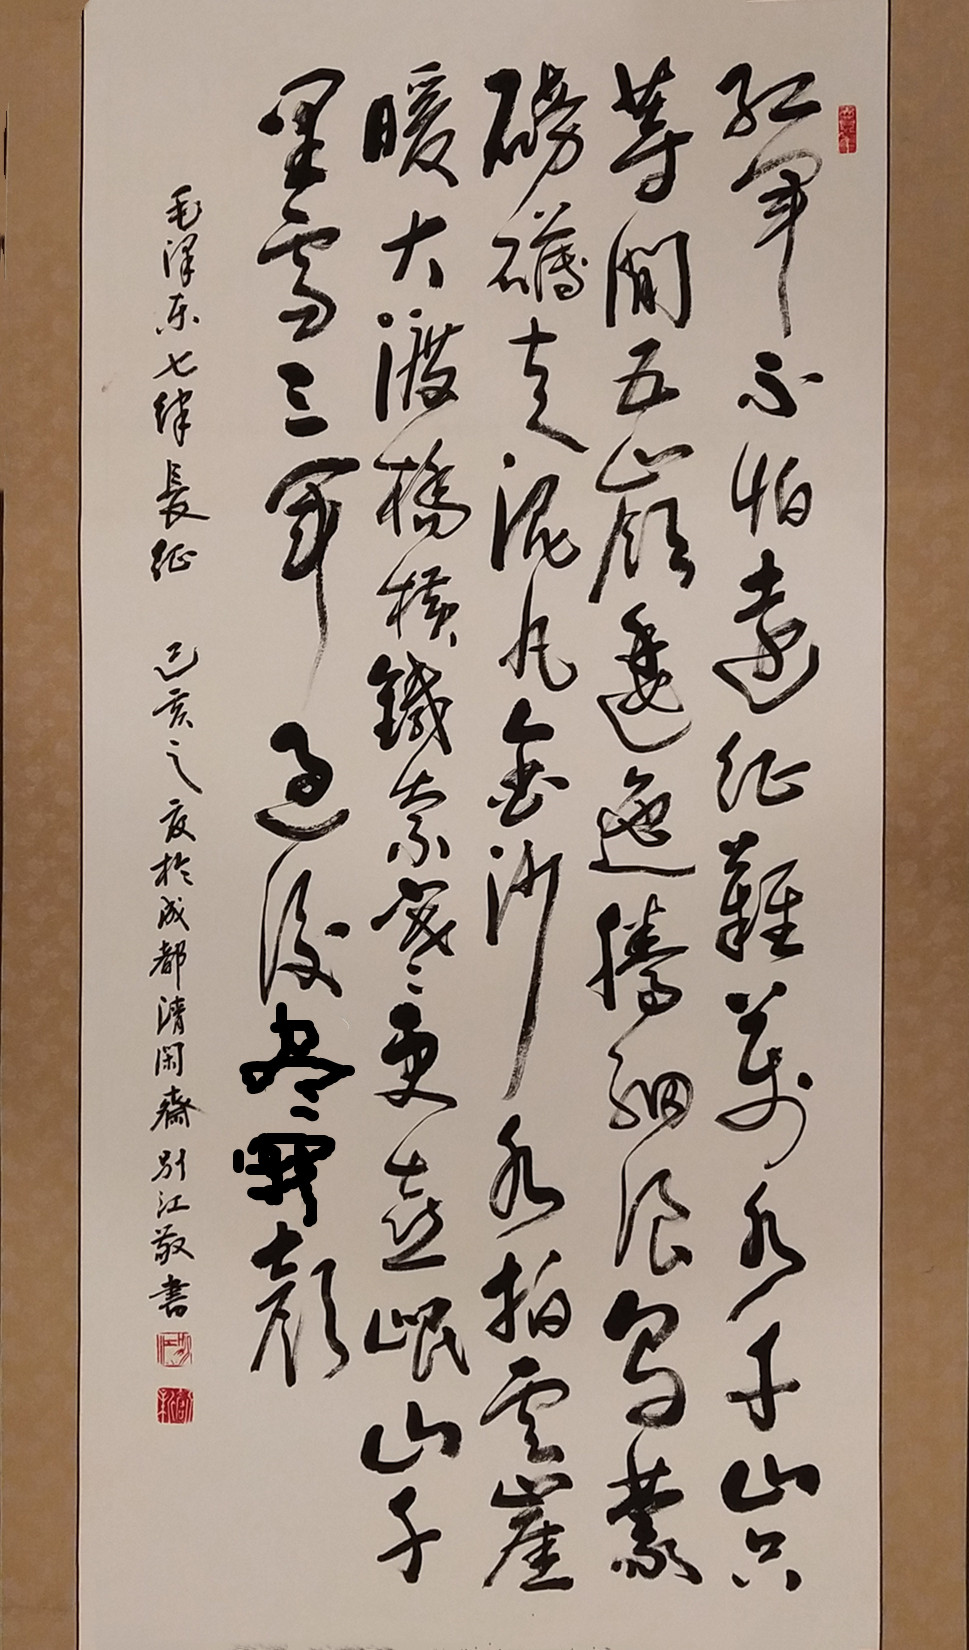 紅軍不怕遠征難萬水千山只
等閒五嶺逶迤騰細浪烏蒙
磅礴走泥丸金沙水拍雲崖
暖大渡橋橫鐵索寒更喜岷山千
里雪三軍過後尽顏
毛澤东七律長征 己亥之夏於成都清闲齋別江敬書